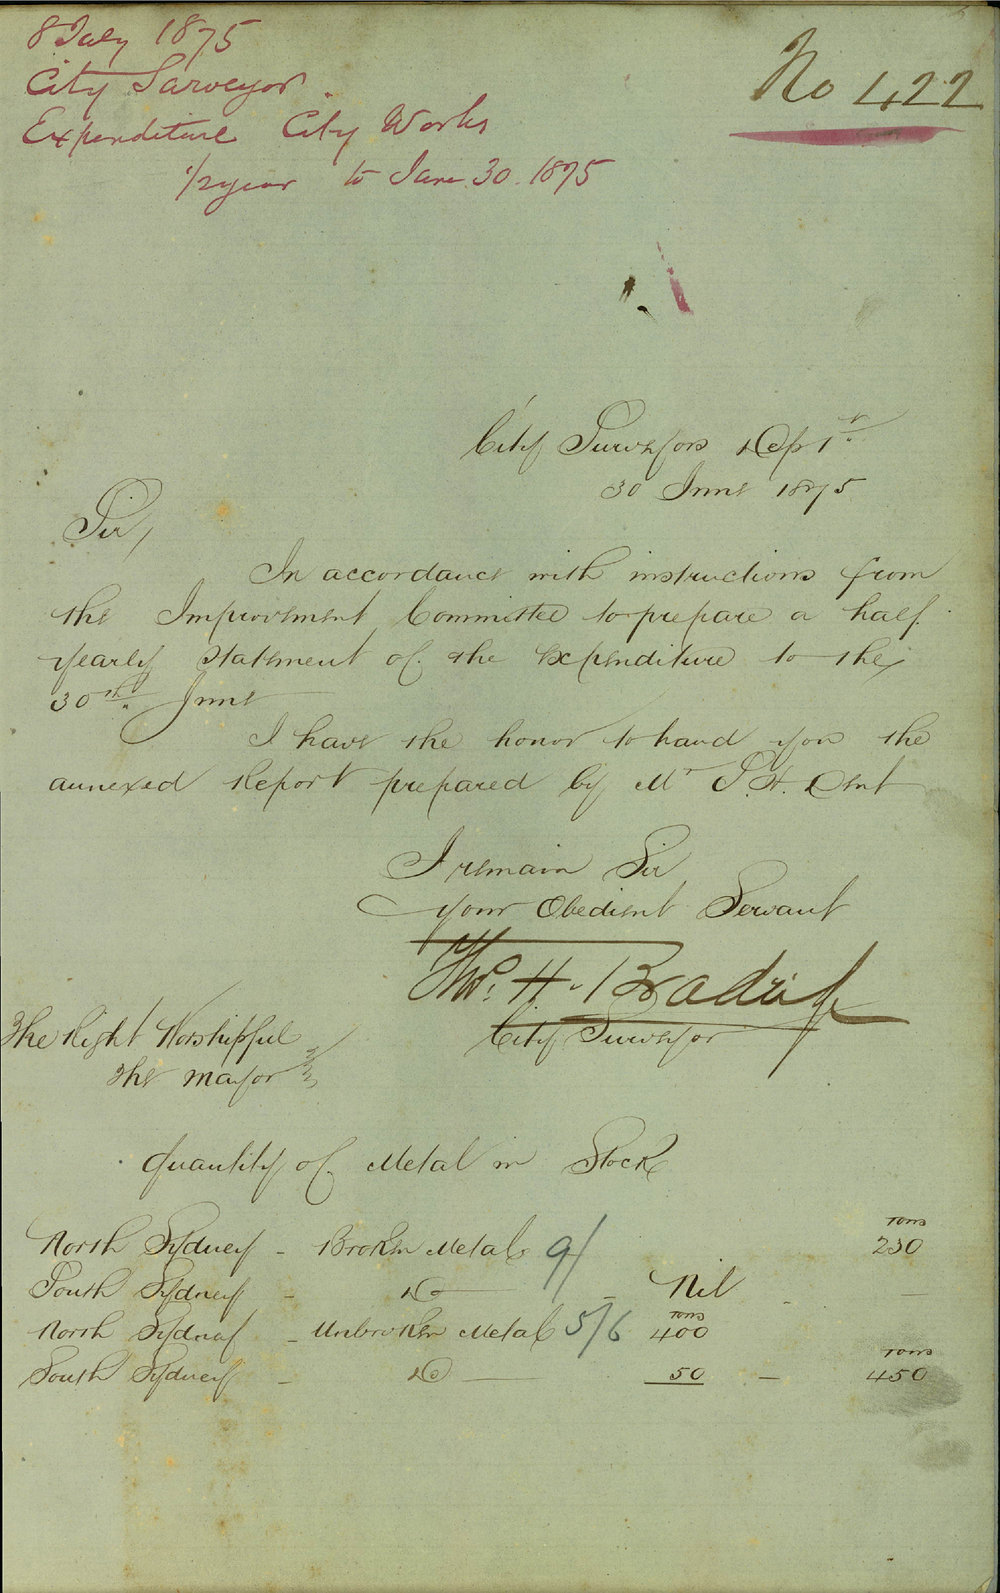 8 July 1875
City Surveyor
Expenditure City Works
1/2 year to June 30. 1875
No 422
City Surveyors Dept.
30 June 1875
Sir,
In accordance with instructions from
the Improvement Committee to prepare a half
yearly Statement of the Expenditure to the
30th. June
I have the honor to hand you the
annexed Report prepared by Mr J. H. Dent
I remain Sir
your Obedient Servant
Thos. H. Bradridge
City Surveyor
The Right Worshipful
The Mayor
Quantity of Metal in Stock
tons
North Sydney - Broken Metal 9/ 230
South Sydney - Do - Nil -
tons
North Sydney - Unbroken Metal 5/6 400
tons
South Sydney - Do 50 - 450